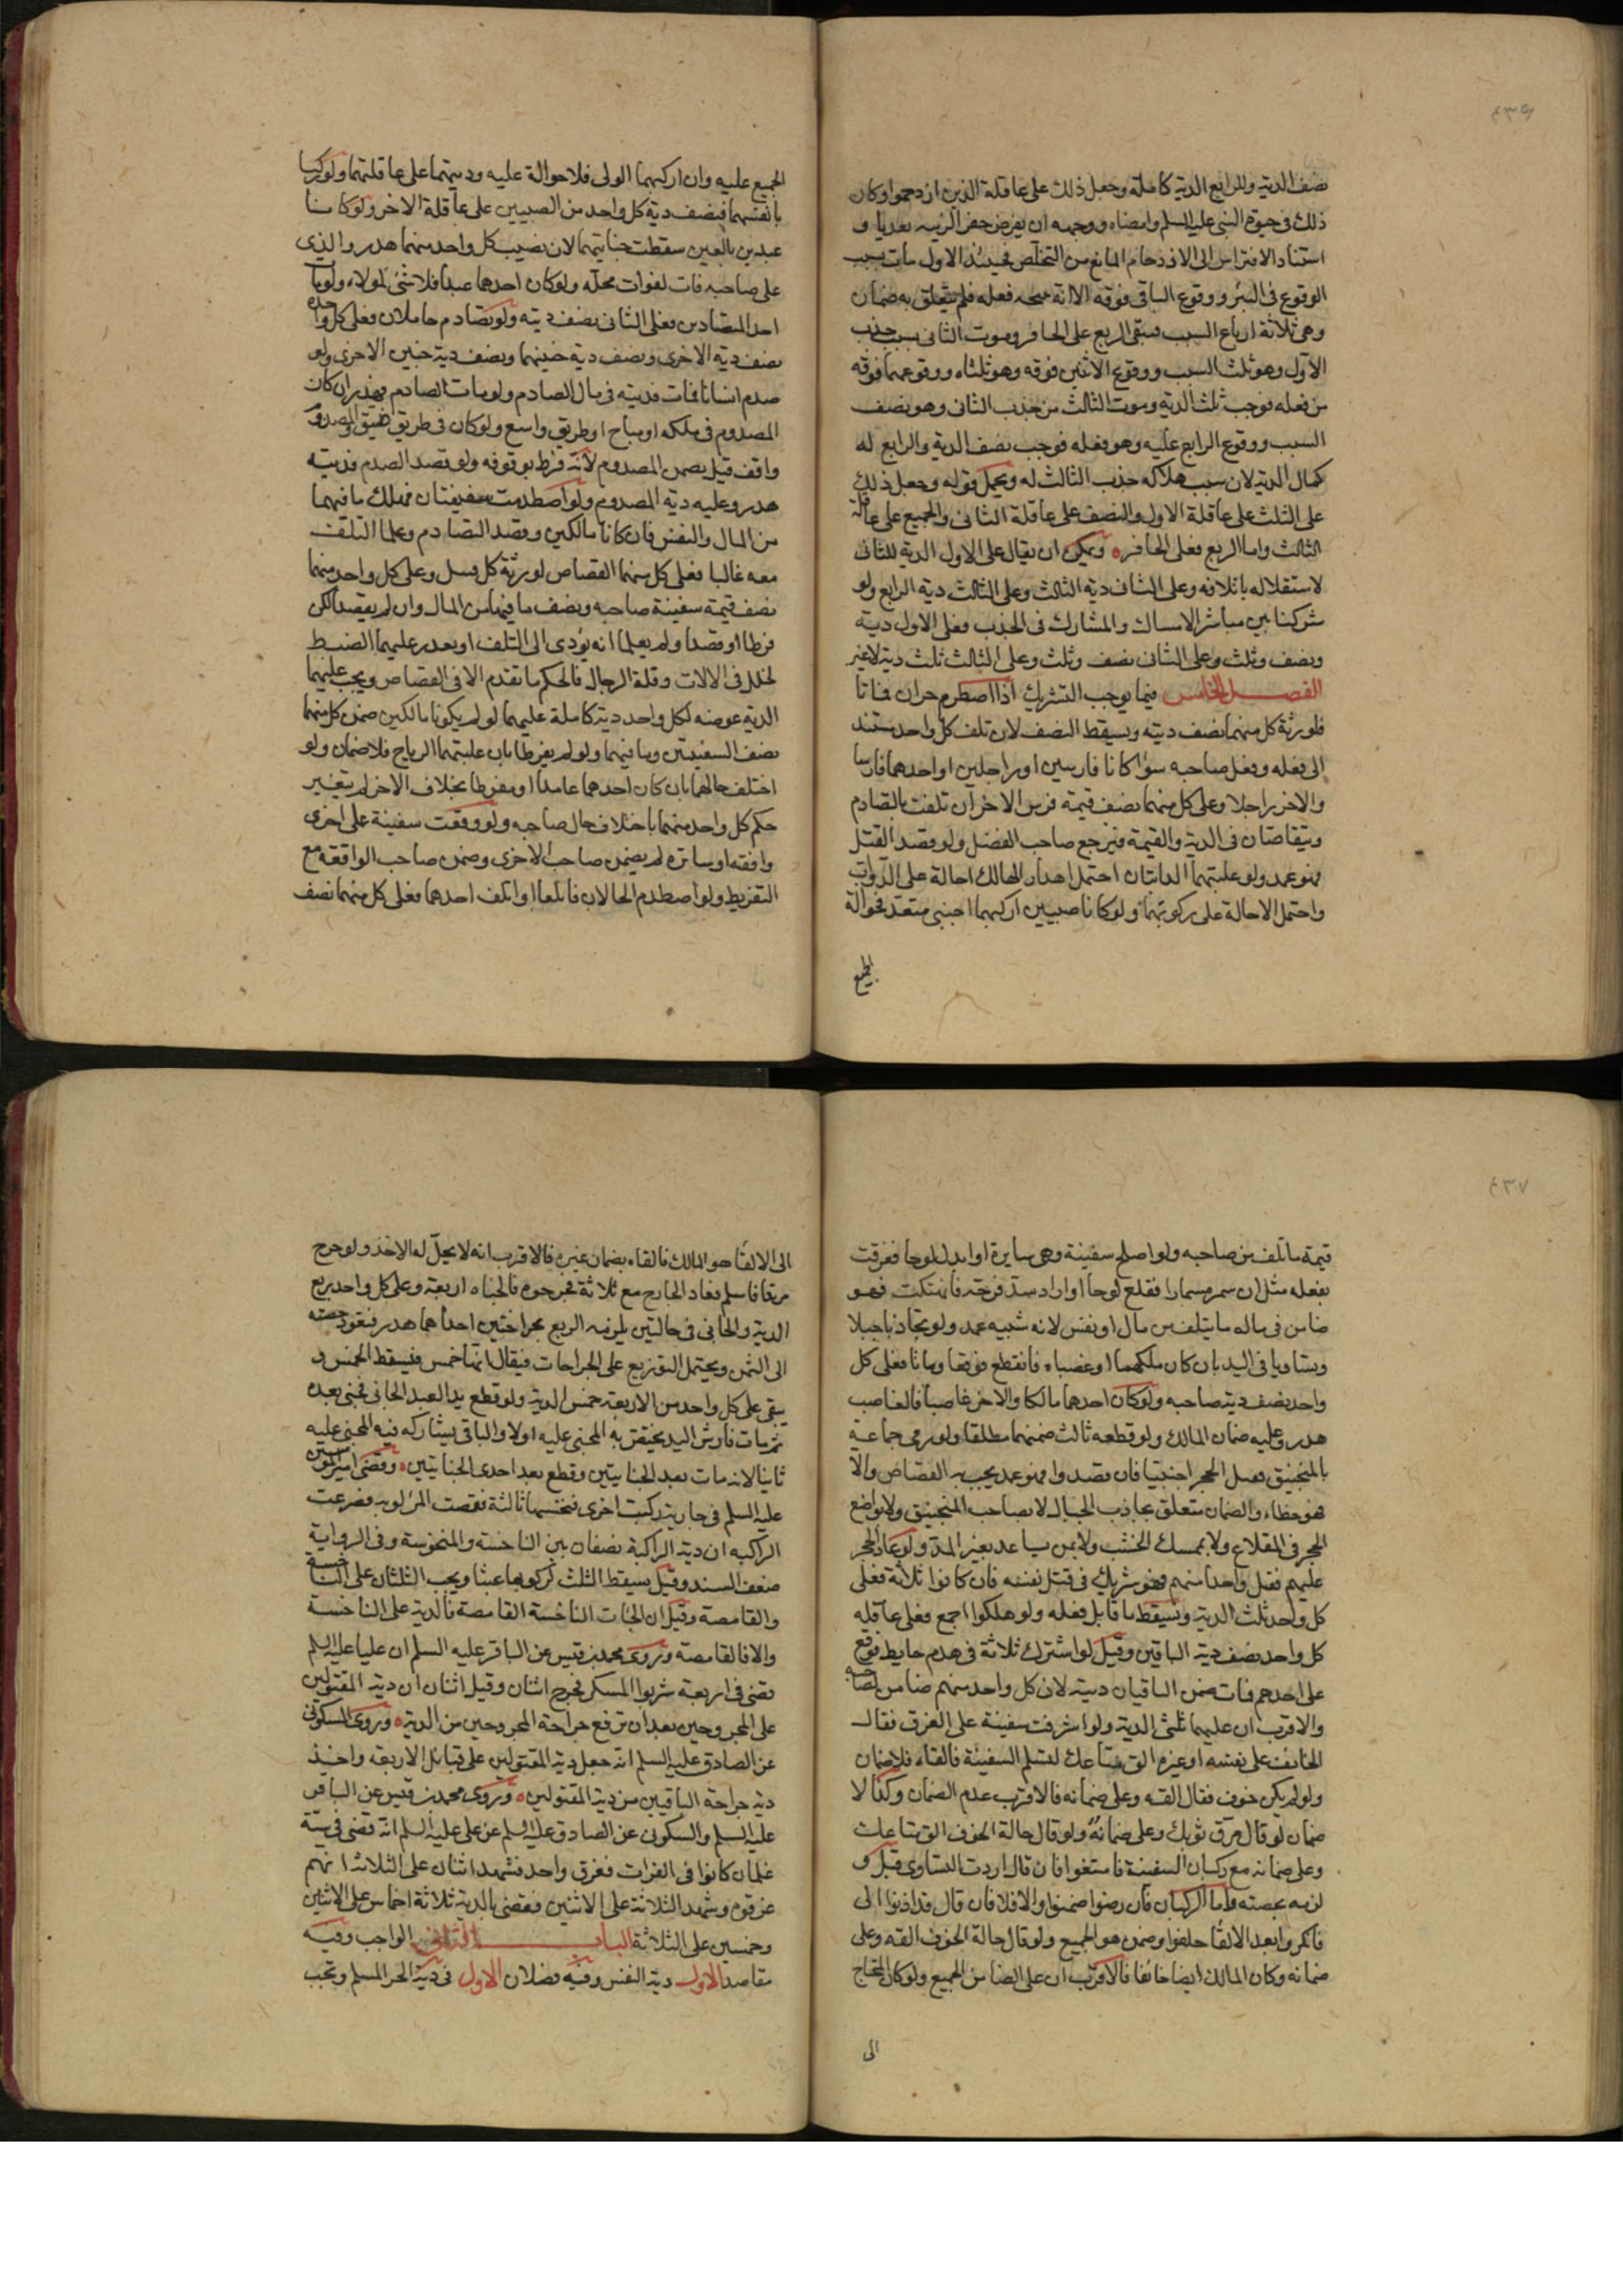 ٤٣٩
نصف الدية وللرابع الدية كاملة وجعل ذلك على عاقلة الذين ازدحموا وكان
ذلك في حيوة النبي عليه السلم وامضاه ووجهه ان يفرض حفر الزبيه تعديا و
استناد الافتراس الى الازدحام المانع من التخلص فحينئذ الاول مات بسبب
الوقوع في البئر ووقوع الباقي فوقه الا انه نتيجه فعله فلم يتعلق به ضمان
وهي ثلاثة ارباع السبب فيبقى الربع على الحافر وموت الثاني بسبب جذب
الاول وهو ثلث السبب ووقوع الاثنين فوقه وهو ثلثاه ووقوعهما فوقه
من فعله فوجب ثلث الدية وموت الثالث من جذب الثاني وهو نصف
السبب ووقوع الرابع عليه وهو فعله فوجب نصف الدية والرابع له
كمال الدية لان سبب هلاكه جذب الثالث له ويحمل قوله وجعل ذلك
على الثلث على عاقلة الاول والنصف على عاقلة الثاني والجميع على عاقلة
الثالث واما الربع فعلى الحافر ويمكن ان يقال على الاول الدية للثاني
لاستقلاله باتلافه وعلى الثاني دية الثالث وعلى الثالث دية الرابع ولو
شركنا بين مباشر الامساك والمشارك في الجذب فعلى الاول دية
ونصف وثلث وعلى الثاني نصف وثلث وعلى الثالث ثلث دية لا غير
الفصل الخامس فيما يوجب التشريك اذا اصطدم حران فماتا
فلورثة كل منهما نصف ديته ويسقط النصف لان تلف كل واحد مستند
الى فعله وفعل صاحبه سواء كانا فارسين او راجلين او احدهما فارسا
والاخر راجلا وعلى كل منهما نصف قيمة فرس الاخر ان تلفت بالتصادم
ويتقاصان في الدية والقيمة فيرجع صاحب الفضل ولو قصد القتل
فهو عمد ولو غلبتهما الدابتان احتمل اهدار الهالك احالة على الدواب
واحتمل الاحالة على ركوبهما ولو كانا صبيين اركبهما اجنبي متعد فحوالة
الجميع
الجميع عليه وان اركبهما الولي فلا حوالة عليه وديتهما على عاقلتهما ولو ركبا
بانفسهما فنصف دية كل واحد من الصبيين على عاقلة الاخر ولو كانا
عبدين بالغين سقطت جنايتهما لان نصيب كل واحد منهما هدر والذي
على صاحبه فات لفوات محله ولو كان احدهما عبدا فلا شئ لمولاه ولو مات
احد المتصادمين فعلى الثاني نصف ديته ولو تصادم حاملان فعلى كل واحدة
نصف دية الاخرى ونصف دية جنينها ونصف دية جنين الاخرى ولو
صدم انسانا فمات فديته في مال الصادم ولو مات الصادم فهدر ان كان
المصدوم في ملكه او مباح او طريق واسع ولو كان في طريق ضيق والمصدوم
واقف قيل يضمن المصدوم لانه فرط بوقوفه ولو قصد الصدم فديته
هدر وعليه دية المصدوم ولو اصطدمت سفينتان فهلك ما فيهما
من المال والنفس فان كانا مالكين وقصدا التصادم وعلما التلف
معه غالبا فعلى كل منهما القصاص لورثة كل قتيل وعلى كل واحد منهما
نصف قيمة سفينة صاحبه ونصف ما فيها من المال وان لم يقصدا لكن
فرطا او قصدا ولم يعلما انه يؤدي الى التلف او تعذر عليهما الضبط
لخلل في الالات وقلة الرجال فالحكم ما تقدم الا في القصاص ويجب عليهما
الدية عوضه لكل واحد دية كاملة عليهما لو لم يكونا مالكين ضمن كل منهما
نصف السفينتين وما فيهما ولو لم يفرطا بان غلبتهما الرياح فلا ضمان ولو
اختلف حالهما بان كان احدهما عامدا او مفرطا بخلاف الاخر لم يتغير
حكم كل واحد منهما باختلاف حال صاحبه ولو وقعت سفينة على اخرى
واقفة او سائرة لم يضمن صاحب الاخرى وضمن صاحب الواقعة مع
التفريط ولو اصطدم الحمالان فاتلفا او اتلف احدهما فعلى كل منهما نصف
٤٣٧
قيمة ما تلف من صاحبه ولو اصلح سفينة وهي سايرة او ابدل لوحا فغرقت
بفعله مثل ان سمر مسمارا فقلع لوحا او اراد سد فرجة فانهتكت فهو
ضامن في ماله ما يتلف من مال او نفس لانه شبيه عمد ولو تجاذبا حبلا
وتساويا في اليد بان كان ملكهما او غصباه فانقطع فوقعا وماتا فعلى كل
واحد نصف دية صاحبه ولو كان احدهما مالكا والاخر غاصبا فالغاصب
هدر وعليه ضمان المالك ولو قطعه ثالث ضمنهما مطلقا ولو رمى جماعة
بالمنجنيق فقتل الحجر اجنبيا فان قصدوا فهو عمد يجب به القصاص والا
فهو خطاء والضمان متعلق بجاذب الحبال لا بصاحب المنجنيق ولا بواضع
الحجر في المقلاع ولا بممسك الخشب ولا بمن يساعد بغير المد ولو عاد الحجر
عليهم فقتل واحدا منهم فهو شريك في قتل نفسه فان كانوا ثلاثة فعلى
كل واحد ثلث الدية ويسقط ما قابل فعله ولو هلكوا اجمع فعلى عاقلة
كل واحد نصف دية الباقين وقيل لو اشترك ثلاثة في هدم حايط فوقع
على احدهم فمات ضمن الباقيان ديته لان كل واحد منهم ضامن لصاحبه
والاقرب ان عليهما ثلثي الدية ولو اشرفت سفينة على الغرق فقال
الخائف على نفسه او غيره الق متاعك لتسلم السفينة فالقاه فلا ضمان
ولو لم يكن خوف فقال القه وعلي ضمانه فالاقرب عدم الضمان وكذا لا
ضمان لو قال مزق ثوبك وعلي ضمانه ولو قال حالة الخوف الق متاعك
وعلي ضمانه مع ركبان السفينة فامتنعوا فان قال اردت التساوي قبل و
لزمه بحصته واما الركبان فان رضوا ضمنوا والا فلا فان قال قد اذنوا لي
فانكروا بعد الالقاء حلفوا وضمن هو الجميع ولو قال حالة الخوف القه وعلي
ضمانه وكان المالك ايضا خائفا فالاقرب ان على الضامن الجميع ولو كان المحتاج
الى
الى الالقاء هو المالك فالقاه بضمان غيره فالاقرب انه لا يحل له الاخذ ولو جرح
مرتدا فاسلم فعاد الجارح مع ثلاثة فجرحوه فالجناه اربعة وعلى كل واحد ربع
الدية والجاني في حالتين يلزمه الربع بجراحتين احداهما هدر فتعود حصته
الى الثمن ويحتمل التوزيع على الجراحات فيقال انها خمس فيسقط الخمس و
يبقى على كل واحد من الاربعة خمس الدية ولو قطع يد العبد الجاني فجنى بعده
ثم مات فارش اليد يختص به المجنى عليه اولا والباقي يشاركه فيه المجنى عليه
ثانيا لانه مات بعد الجنايتين وقطع بعد احدى الجنايتين وقضى امير المؤمنين
عليه السلم في جارية ركبت اخرى فنخستها ثالثة فقمصت المركوبه فصرعت
الراكبه ان دية الراكبة نصفان بين الناخسة والمنخوسة وفي الرواية
ضعف السند وقيل يسقط الثلث لركوبها عبثا ويجب الثلثان على الناخسة
والقامصة وقيل ان الجات الناخسة القامصة فالدية على الناخسة
والا فالقامصة وروى محمد بن قيس عن الباقر عليه السلم ان عليا عليه السلم
قضى في اربعة شربوا المسكر فجرح اثنان وقتل اثنان ان دية المقتولين
على المجروحين بعد ان ترفع جراحة المجروحين من الدية وروى السكوني
عن الصادق عليه السلم انه جعل دية المقتولين على قبائل الاربعة واخذ
دية جراحة الباقيين من دية المقتولين وروى محمد بن قيس عن الباقر
عليه السلم والسكوني عن الصادق عليه السلم عن علي عليه السلم انه قضى في ستة
غلمان كانوا في الفرات فغرق واحد فشهد اثنان على الثلاثة انهم
غرقوه وشهد الثلاثة على الاثنين فقضى بالدية ثلاثة اخماس على الاثنين
وخمسين على الثلاثة الباب الثاني في الواجب وفيه
مقاصد الاول دية النفس وفيه فصلان الاول في دية الحر المسلم وتجب